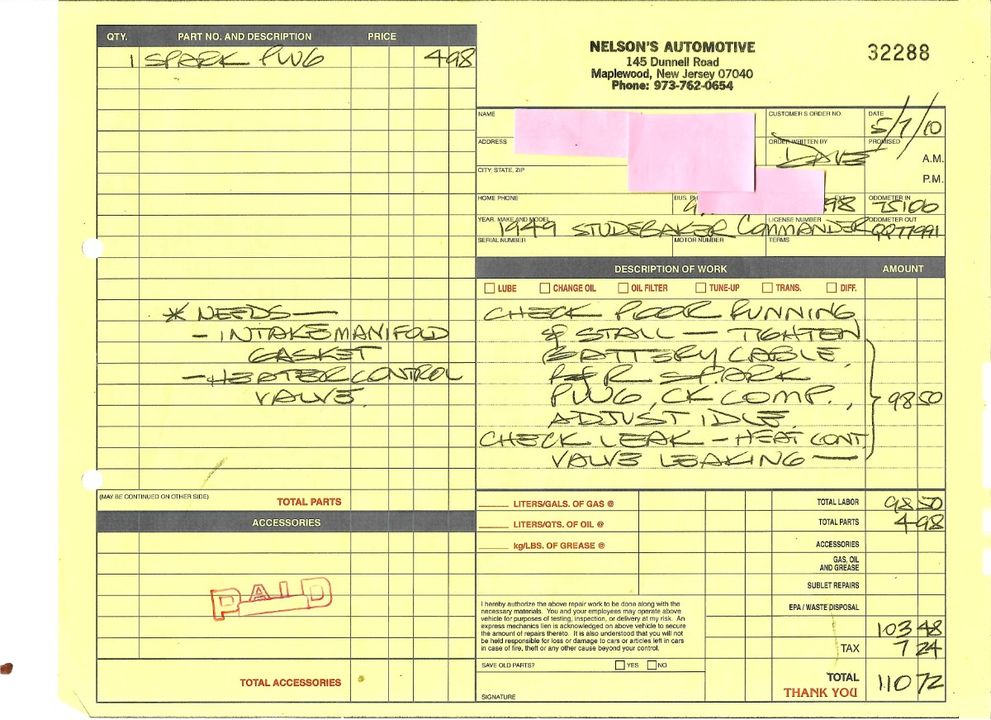 QTY. PART NO. AND DESCRIPTION PRICE
1 SPARK PLUG 4 98
* NEEDS —
- INTAKE MANIFOLD
GASKET
- HEATER CONTROL
VALVE
(MAY BE CONTINUED ON OTHER SIDE) TOTAL PARTS
ACCESSORIES
PAID
TOTAL ACCESSORIES
NELSON'S AUTOMOTIVE
145 Dunnell Road
Maplewood, New Jersey 07040
Phone: 973-762-0654
32288
NAME CUSTOMER'S ORDER NO. DATE
5/7/10
ADDRESS ORDER WRITTEN BY PROMISED
DAVE A.M.
P.M.
CITY, STATE, ZIP
HOME PHONE BUS. ODOMETER IN
98 75106
YEAR, MAKE AND MODEL LICENSE NUMBER ODOMETER OUT
1949 STUDEBAKER COMMANDER QQ77991
SERIAL NUMBER MOTOR NUMBER TERMS
DESCRIPTION OF WORK AMOUNT
LUBE CHANGE OIL OIL FILTER TUNE-UP TRANS. DIFF.
CHECK POOR RUNNING
& STALL — TIGHTEN
BATTERY CABLE,
R&R SPARK
PLUG, CK COMP., 98 50
ADJUST IDLE.
CHECK LEAK - HEAT CONT.
VALVE LEAKING —
LITERS/GALS. OF GAS @ TOTAL LABOR 98 50
LITERS/QTS. OF OIL @ TOTAL PARTS 4 98
kg/LBS. OF GREASE @ ACCESSORIES
GAS, OIL
AND GREASE
SUBLET REPAIRS
EPA / WASTE DISPOSAL
I hereby authorize the above repair work to be done along with the
necessary materials. You and your employees may operate above
vehicle for purposes of testing, inspection, or delivery at my risk. An
express mechanics lien is acknowledged on above vehicle to secure
the amount of repairs thereto. It is also understood that you will not
be held responsible for loss or damage to cars or articles left in cars
in case of fire, theft or any other cause beyond your control.
103 48
TAX 7 24
SAVE OLD PARTS? YES NO
TOTAL 110 72
THANK YOU
SIGNATURE